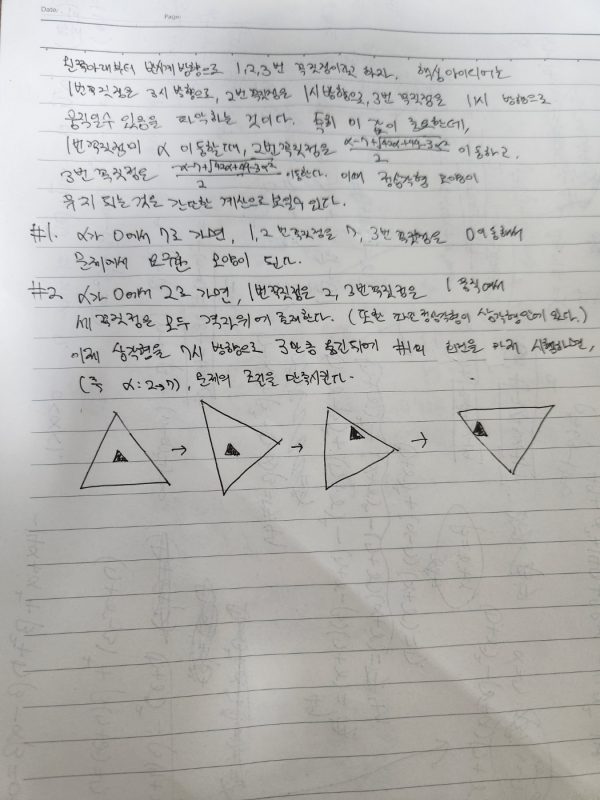 Date:
Page:
왼쪽아래부터 반시계 방향으로 1,2,3번 꼭짓점이라고 하자. 핵심 아이디어는
1번꼭짓점은 3시 방향으로, 2번꼭짓점은 1시 방향으로, 3번 꼭짓점은 1시 방향으로
움직일수 있음을 파악하는 것이다. 특히 이 값이 중요한데,
1번꼭짓점이 α 이동할때, 2번꼭짓점은 (α-7+√(42α+49-3α²))/2 이동하고,
3번 꼭짓점은 (-α-7+√(42α+49-3α²))/2 이동한다. 이때 정삼각형 모양이
유지 되는 것은 간단한 계산으로 보일수 있다.
#1. α가 0에서 7로 가면, 1,2번꼭짓점은 7, 3번 꼭짓점은 0 이동해서
문제에서 요구한 모양이 된다.
#2 α가 0에서 2로 가면, 1번꼭짓점은 2, 3번꼭짓점은 1 움직여서
세 꼭짓점은 모두 격자위에 존재한다. (또한 파란정삼각형이 삼각형안에 있다.)
이제 삼각형을 7시 방향으로 3만큼 옮긴뒤에 #1의 한번을 마저 시행하면,
(즉 α:2→7), 문제의 조건을 만족시킨다.